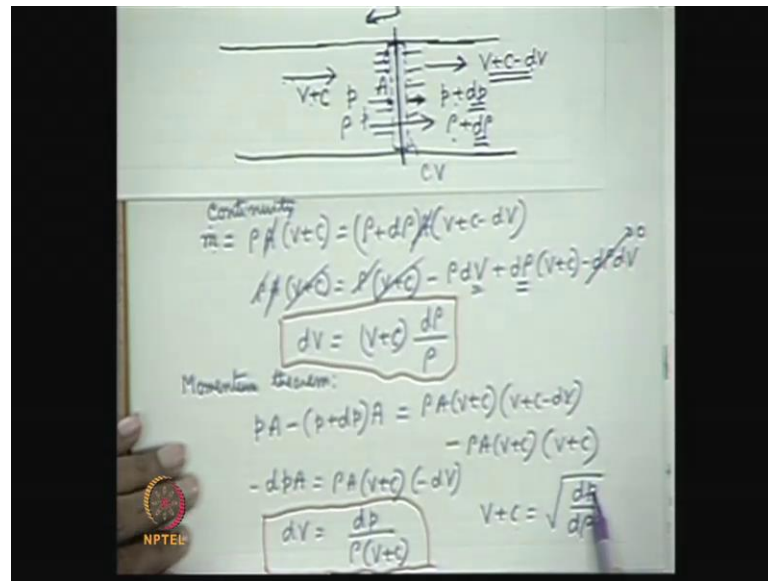 V+C-dV
V+C p A p+dp
ρ ρ+dρ
CV
Continuity
ṁ = ρA(V+C) = (ρ+dρ)A(V+C-dV)
ρA(V+C) = ρ(V+C) - ρdV + dρ(V+C) - dρdV →0
dV = (V+C) dρ/ρ
Momentum theorem:
pA-(p+dp)A = ρA(V+C)(V+C-dV)
-ρA(V+C)(V+C)
-dpA = ρA(V+C)(-dV)
dV = dp/ρ(V+C) V+C = √dp/dρ
NPTEL